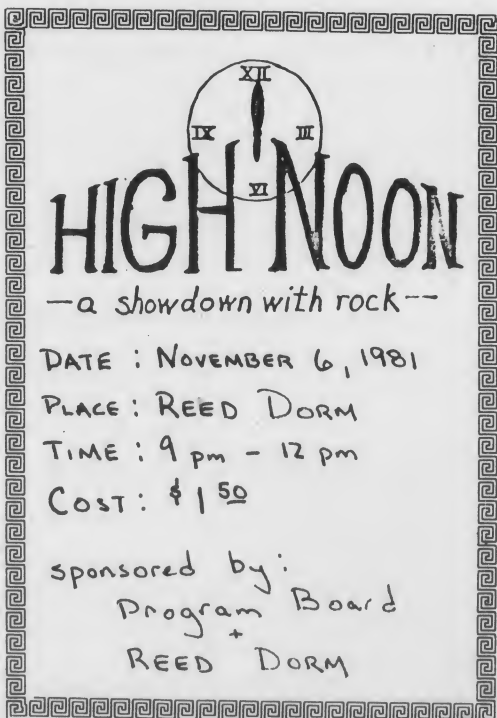 XII
IX III
VI
HIGH NOON
—a showdown with rock--
DATE : NOVEMBER 6, 1981
PLACE : REED DORM
TIME : 9 pm - 12 pm
COST : $1 50
sponsored by:
Program Board
+
REED DORM